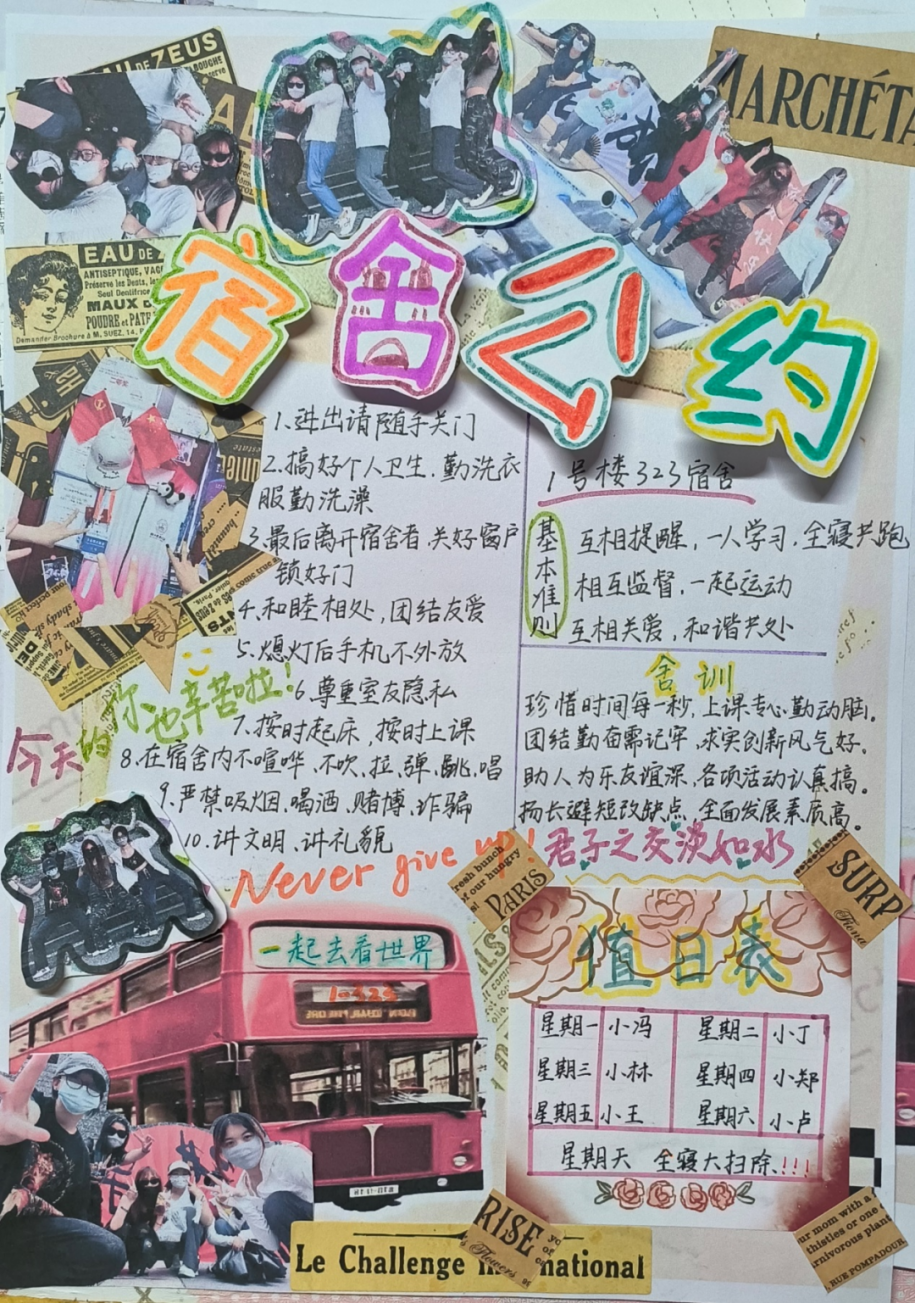 EAU DE ZEUS
MARCHÉTA
EAU DE
ANTISEPTIQUE, VAC
Préserve les Dents, les
Seul Dentifrice
MAUX D
POUDRE et PAT
Demander Brochure à M. SUEZ, 14, P
宿舍公约
1.进出请随手关门
2.搞好个人卫生.勤洗衣
服勤洗澡
3.最后离开宿舍者.关好窗户
锁好门
4.和睦相处,团结友爱
5.熄灯后手机不外放
6.尊重室友隐私
7.按时起床,按时上课
8.在宿舍内不喧哗、不吹、拉、弹、跳、唱
9.严禁吸烟、喝酒、赌博、诈骗
10.讲文明、讲礼貌
今天的你、也辛苦啦!
Never give up!
1号楼323宿舍
基本准则
互相提醒,一人学习.全寝共跑
相互监督,一起运动
互相关爱,和谐共处
舍训
珍惜时间每一秒,上课专心勤动脑。
团结勤奋需记牢,求实创新风气好。
助人为乐友谊深,各项活动认真搞。
扬长避短改缺点,全面发展素质高。
君子之交淡如水
resh bunch
of our hungry
PARIS
SURP
Fiona
一起去看世界
1-323
值日表
星期一 小冯 星期二 小丁
星期三 小林 星期四 小郑
星期五 小王 星期六 小卢
星期天 全寝大扫除!!!
RISE
Flowers
Le Challenge International
ur mom with a
thistles or one
rnivorous plan
RUE POMPADOUR